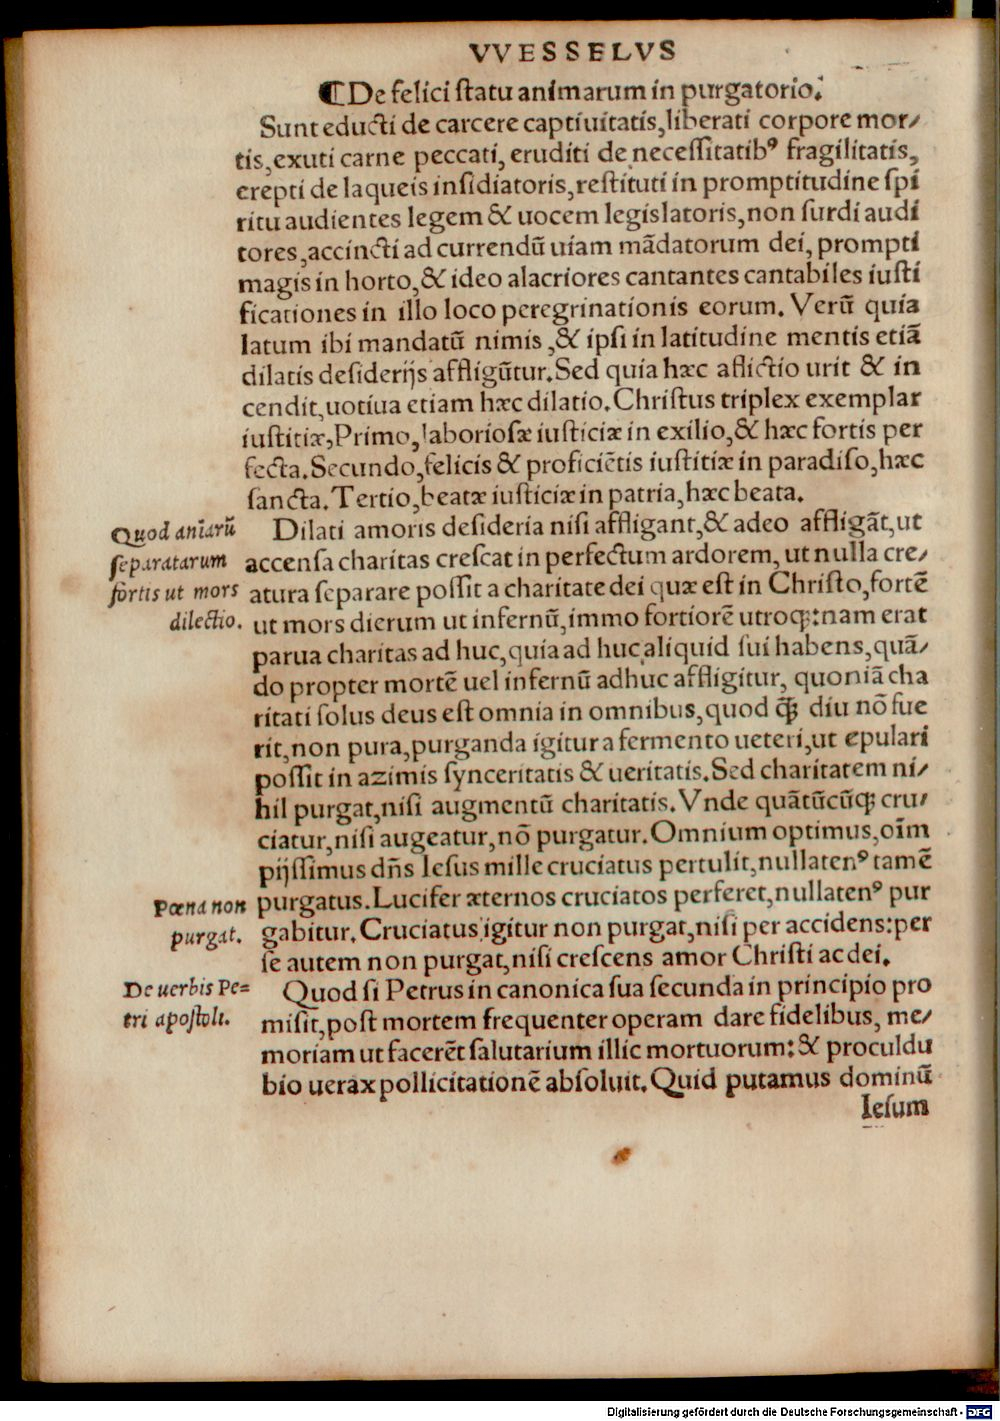 VVESSELVS
¶De felici ſtatu animarum in purgatorio.
Sunt educti de carcere captiuitatis,liberati corpore mor⸗
tis,exuti carne peccati, eruditi de neceſſitatibꝰ fragilitatis,
erepti de laqueis inſidiatoris,reſtituti in promptitudine ſpi
ritu audientes legem & uocem legiſlatoris,non ſurdi audi
tores,accincti ad currendū uiam mādatorum dei, prompti
magis in horto,& ideo alacriores cantantes cantabiles iuſti
ficationes in illo loco peregrinationis eorum. Verū quia
latum ibi mandatū nimis ,& ipſi in latitudine mentis etiā
dilatis deſiderijs affligūtur.Sed quia hæc aflictio urit & in
cendit,uotiua etiam hæc dilatio.Chriſtus triplex exemplar
iuſtitiæ,Primo,laborioſæ iuſticiæ in exilio,& hæc fortis per
fecta.Secundo,felicis & proficiētis iuſtitiæ in paradiſo,hæc
ſancta.Tertio,beatæ iuſticiæ in patria,hæc beata.
Quod aniarū
ſeparatarum
fortis ut mors
dilectio.
Dilati amoris deſideria niſi affligant,& adeo affligāt,ut
accenſa charitas creſcat in perfectum ardorem, ut nulla cre⸗
atura ſeparare poſſit a charitate dei quæ eſt in Chriſto,fortē
ut mors dierum ut infernū,immo fortiorē utroqꝫ:nam erat
parua charitas ad huc,quia ad huc aliquid ſui habens,quā⸗
do propter mortē uel infernū adhuc affligitur, quoniā cha
ritati ſolus deus eſt omnia in omnibus,quod qꝫ̄ diu nō fue
rit,non pura,purganda igitur a fermento ueteri,ut epulari
poſſit in azimis ſynceritatis & ueritatis.Sed charitatem ni⸗
hil purgat,niſi augmentū charitatis.Vnde quātūcūqꝫ cru⸗
ciatur,niſi augeatur,nō purgatur.Omnium optimus,oīm
pijſſimus dn̄s Ieſus mille cruciatus pertulit,nullatenꝰ tamē
purgatus.Lucifer æternos cruciatos perferet,nullatenꝰ pur
gabitur.Cruciatus igitur non purgat,niſi per accidens:per
ſe autem non purgat,niſi creſcens amor Chriſti ac dei.
Pœna non
purgat.
De uerbis Pe=
tri apoſtoli.
Quod ſi Petrus in canonica ſua ſecunda in principio pro
miſit,poſt mortem frequenter operam dare fidelibus, me⸗
moriam ut facerēt ſalutarium illic mortuorum:& proculdu
bio uerax pollicitationē abſoluit.Quid putamus dominū
Ieſum
Digitalisierung gefördert durch die Deutsche Forschungsgemeinschaft - DFG